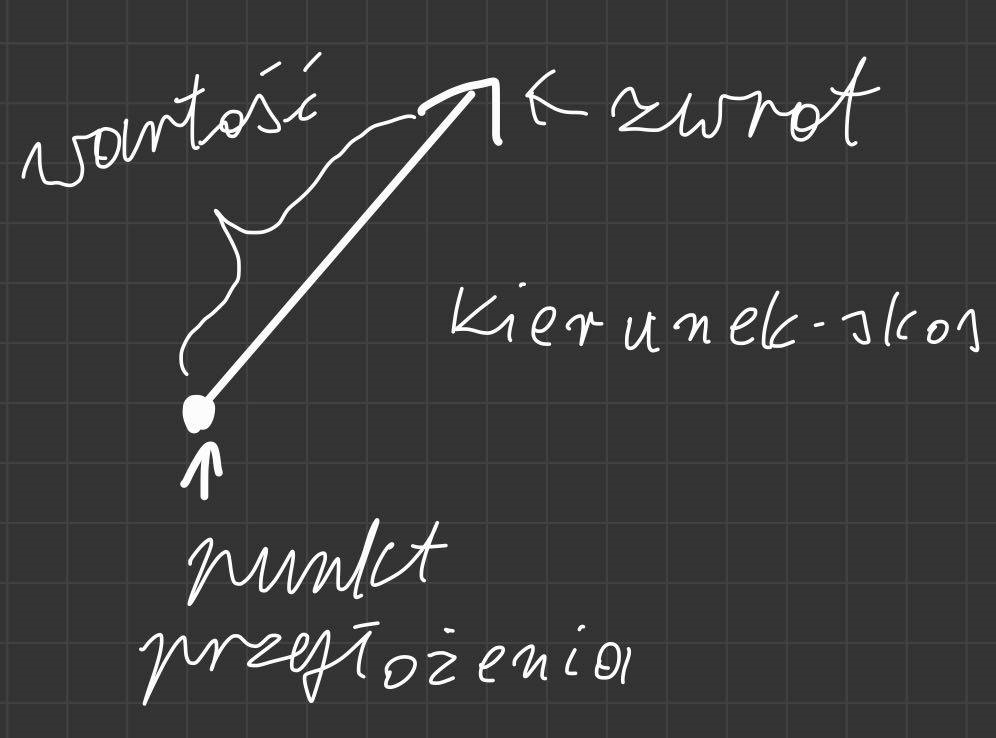 wartość
zwrot
kierunek-skos
punkt
przyłożenia